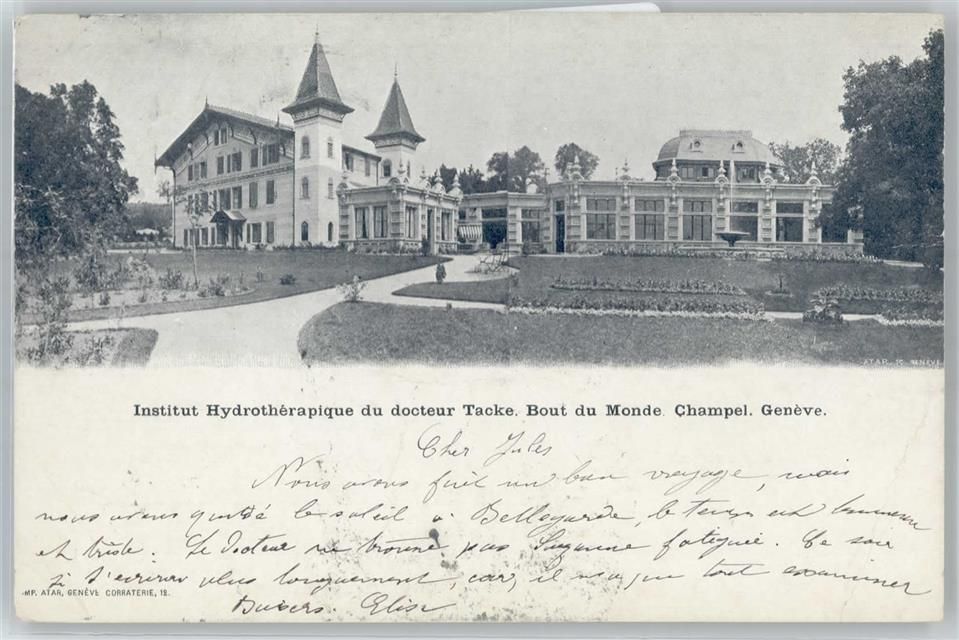 ATAR, SC GENÈVE
Institut Hydrothérapique du docteur Tacke. Bout du Monde. Champel. Genève.
Cher Jules
Nous avons fait un bon voyage, mais
nous avons quitté le soleil à Bellegarde, le temps est brumeux
et triste. Le Docteur ne trouve pas Suzanne fatiguée. Ce soir
je t'écrirai plus longuement, car il n'a pu tout examiner
Baisers. Elise
IMP. ATAR, GENÈVE CORRATERIE, 12.